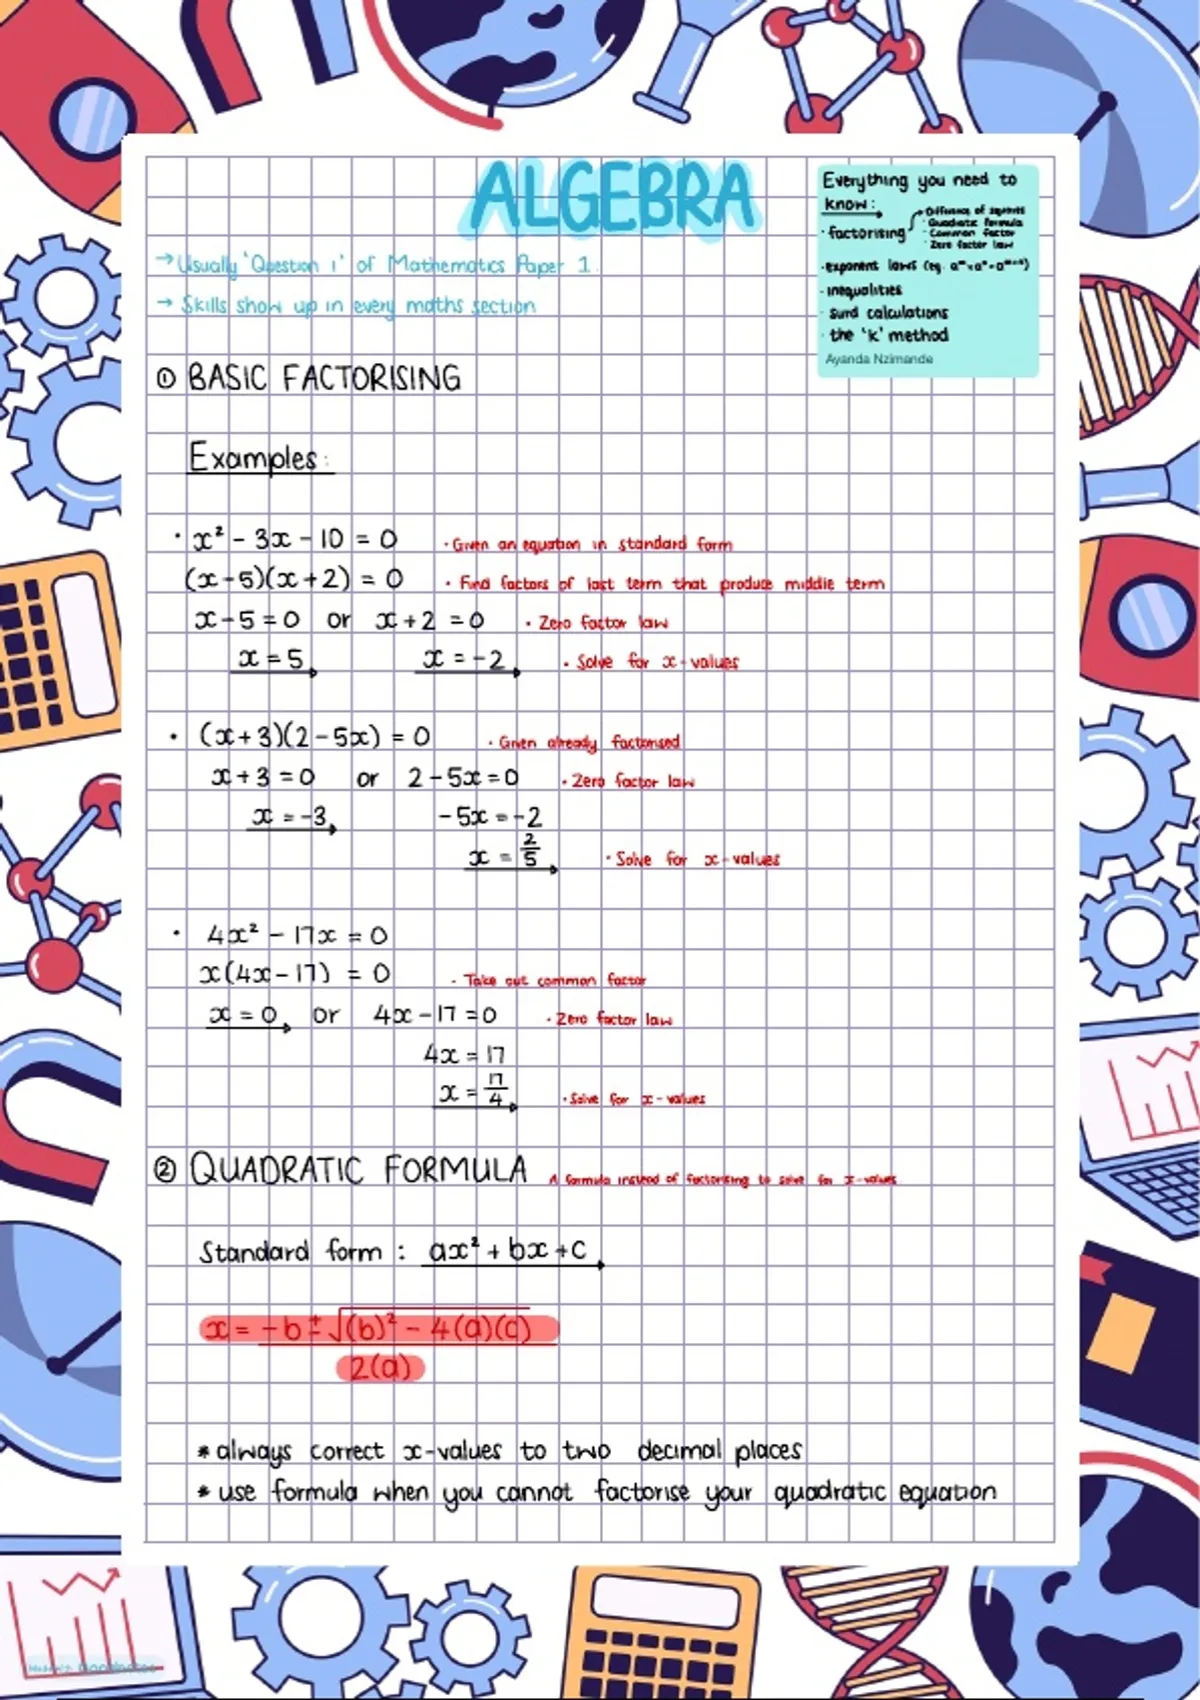 ALGEBRA
→ Usually 'Question 1' of Mathematics Paper 1.
→ Skills show up in every maths section
Everything you need to
know:
· factorising
· Difference of squares
· Quadratic formula
· Common factor
· Zero factor law
· exponent laws (eg. aᵐ×aⁿ=aᵐ⁺ⁿ)
· inequalities
· surd calculations
· the 'k' method
Ayanda Nzimande
① BASIC FACTORISING
Examples:
· x² - 3x - 10 = 0 · Given an equation in standard form
(x-5)(x+2) = 0 · Find factors of last term that produce middle term
x-5=0 or x+2 =0 · Zero factor law
x=5 x = -2 · Solve for x-values
· (x+3)(2-5x) = 0 · Given already factorised
x+3=0 or 2-5x=0 · Zero factor law
x = -3 -5x = -2
x = 2/5 · Solve for x-values
· 4x² - 17x = 0
x(4x-17) = 0 · Take out common factor
x=0 or 4x-17=0 · Zero factor law
4x = 17
x = 17/4 · Solve for x-values
② QUADRATIC FORMULA A formula instead of factorising to solve for x-values
Standard form : ax²+bx+c
x = -b ± √(b)² - 4(a)(c)
2(a)
* always correct x-values to two decimal places
* use formula when you cannot factorise your quadratic equation